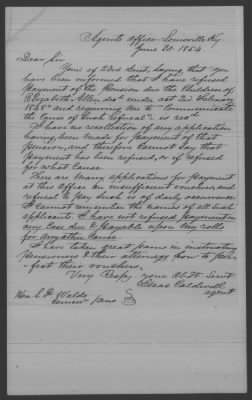 Agents Office Louisville Ky
June 30. 1854
Dear Sir
Yours of 22nd Inst, saying that "you
have been informed that I have refused
payment of the Pension due the Children of
Elizabeth dec'd, under act 2nd February
1848" and requiring me to "communicate
the cause of such refusal" is recd
I have no recollection of any application
having been made for payment of that
pension, and therefore cannot say that
payment has been refused, or if refused
for what cause.
There are many applications for payment
at this office on insufficient vouchers, and
refusal to pay such is of daily occurrence
I cannot remember the names of all such
applicants. I have not refused payment in
any case due & payable upon the rolls
for any other cause.
I have taken great pains in instructing
pensioners & their attorneys how to per-
fect their vouchers.
Very Respy your Obdt. Servt
Isaac Caldwell
agent
Hon. L. P. Waldo
Commr Pens